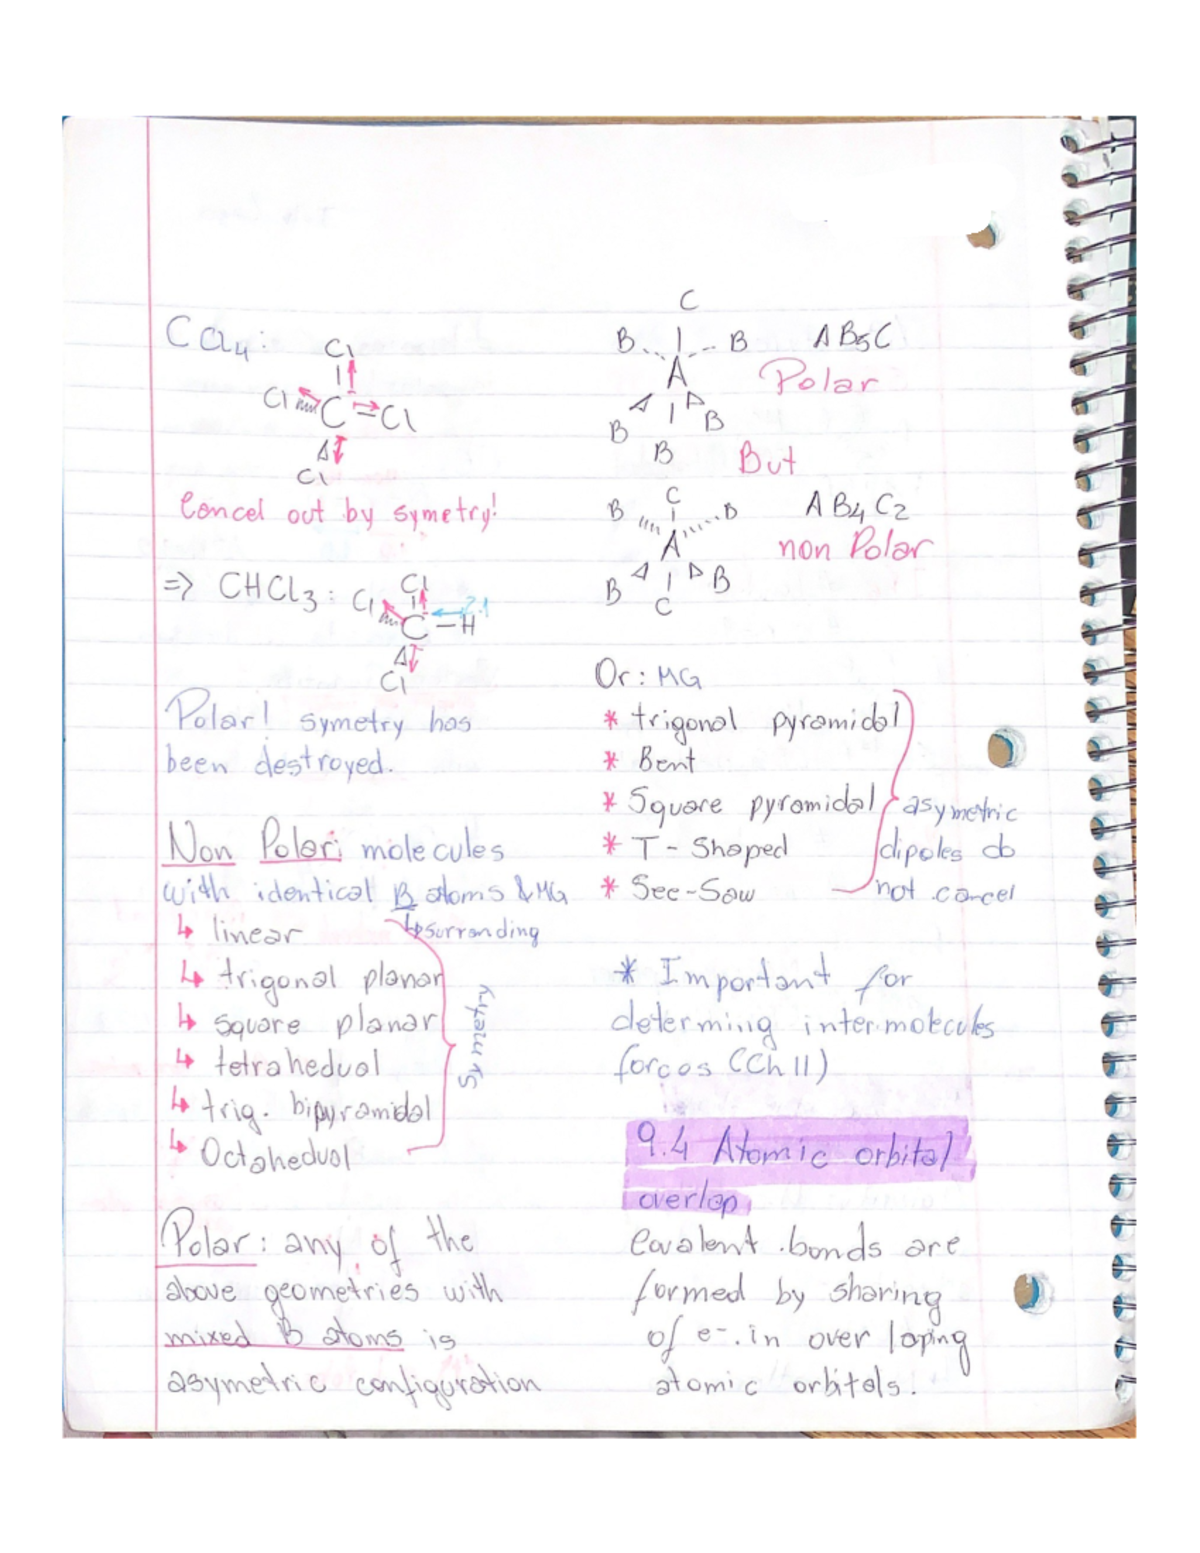 CCl4:
Cl
Cl C Cl
Cl
Cancel out by symetry!
=> CHCl3:
Cl
Cl
2.1
C - H
Cl
Polar! symetry has
been destroyed.
Non Polar: molecules
with identical B atoms & MG
↳ surranding
↳ linear
↳ trigonal planar
↳ square planar
↳ tetrahedual
↳ trig. bipyramidal
↳ Octahedual
Symmetry
Polar: any of the
above geometries with
mixed B atoms is
asymetric configuration
C
B B AB5C
A Polar
B B
B But
C
B B AB4C2
A non Polar
B B
C
Or: MG
* trigonal pyramidal
* Bent
* Square pyramidal
* T - Shaped
* See-Saw
asymetric
dipoles do
not cancel
* Important for
determing inter.molecules
forcos (Ch 11)
9.4 Atomic orbital
overlap
Covalent bonds are
formed by sharing
of e-. in over laping
atomic orbitals.